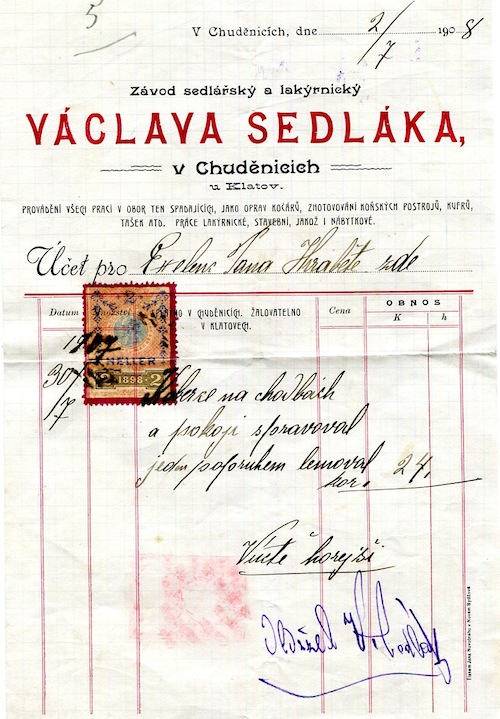 5
V Chuděnicích, dne 2/7 1908
Závod sedlářský a lakýrnický
VÁCLAVA SEDLÁKA,
v Chuděnicích
u Klatov.
PROVÁDĚNÍ VŠECH PRACÍ V OBOR TEN SPADAJÍCÍCH, JAKO OPRAV KOČÁRŮ, ZHOTOVOVÁNÍ KOŇSKÝCH POSTROJŮ, KUFRŮ,
TAŠEK ATD. PRÁCE LAKÝRNICKÉ, STAVEBNÍ, JAKOŽ I NÁBYTKOVÉ.
Účet pro Excelenc Pana Hraběte zde
Datum Množství V CHUDĚNICÍCH. ŽALOVATELNO Cena OBNOS
V KLATOVECH. K h
1907
30/7
HELLER
2 1898 2
Koberce na chodbách
a pokoji spravoval
jeden popruhem lemoval
kor. 24,
Účtě hořejší
obdržel V. Sedlák
Tiskem Jana Novotného v Novém Bydžově